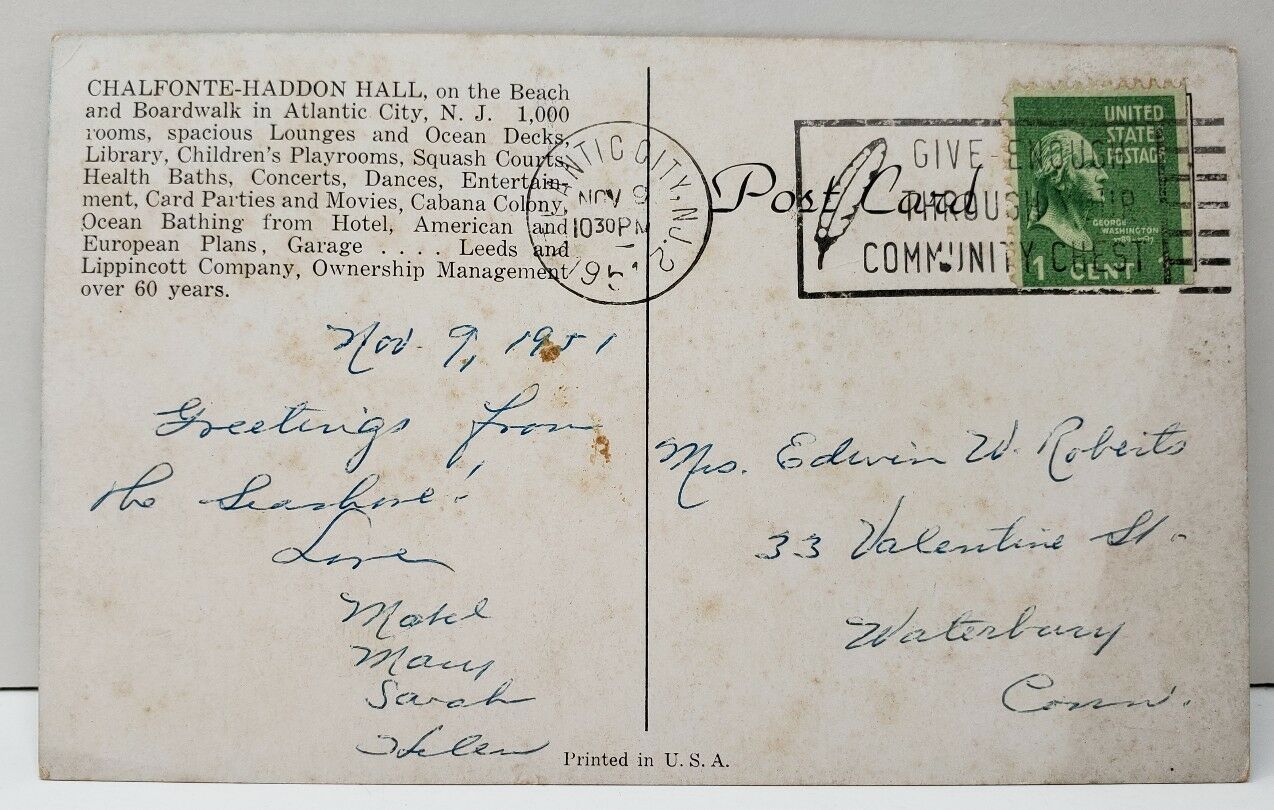 CHALFONTE-HADDON HALL, on the Beach
and Boardwalk in Atlantic City, N. J. 1,000
rooms, spacious Lounges and Ocean Decks,
Library, Children's Playrooms, Squash Courts,
Health Baths, Concerts, Dances, Entertain-
ment, Card Parties and Movies, Cabana Colony,
Ocean Bathing from Hotel, American and
European Plans, Garage . . . . Leeds and
Lippincott Company, Ownership Management
over 60 years.
Nov. 9, 1951
Greetings from
the Seashore!
Love
Mabel
Mary
Sarah
Helen
ANTIC CITY, N.J. 2
NOV 9
10 30 PM
195
Post Card
GIVE ENOUGH
THROUGH
COMMUNITY CHEST
UNITED
STATES
POSTAGE
GEORGE
WASHINGTON
1 CENT 1
Mrs. Edwin W. Roberts
33 Valentine St.
Waterbury
Conn.
Printed in U. S. A.